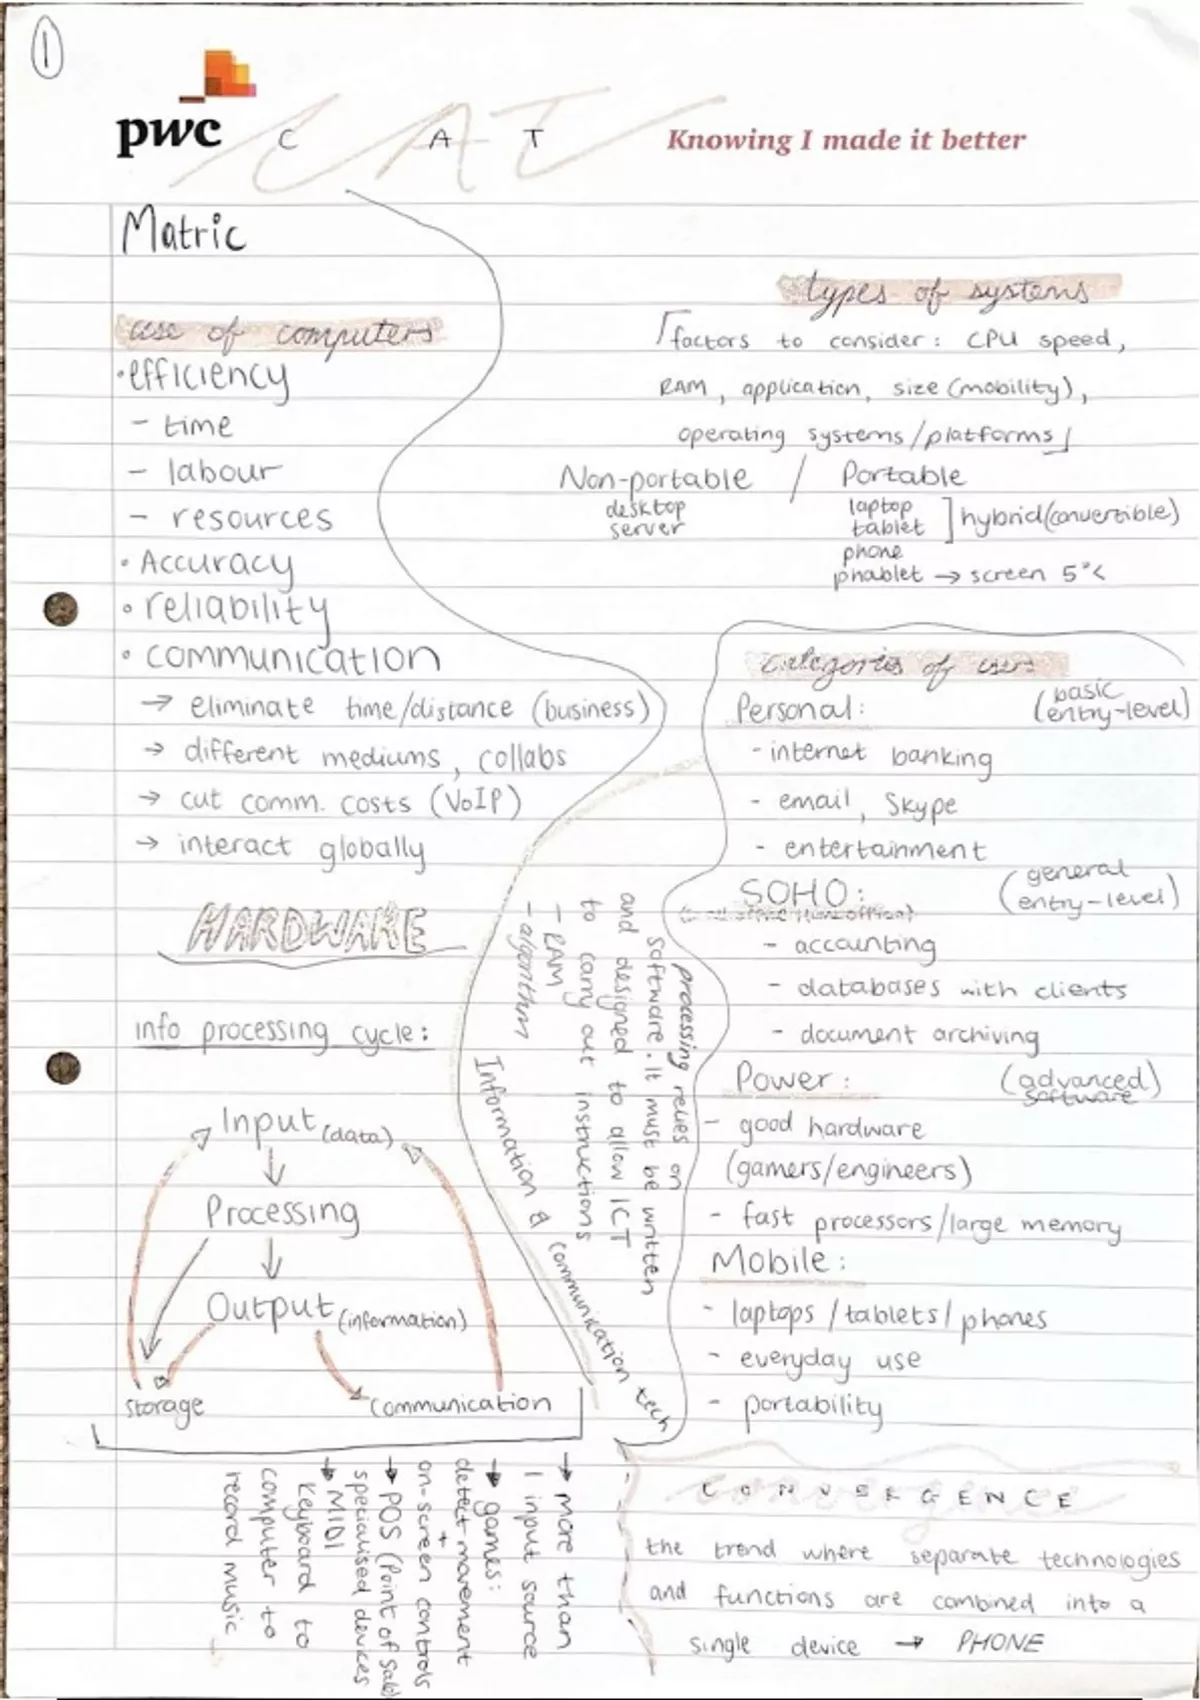 1
pwc
C A T
Knowing I made it better
Matric
use of computers
• efficiency
- time
- labour
- resources
• Accuracy
• reliability
• communication
→ eliminate time/distance (business)
→ different mediums, collabs
→ cut comm. costs (VoIP)
→ interact globally
HARDWARE
info processing cycle:
Input (data)
Processing
Output (information)
storage
communication
→ more than
1 input source
→ games:
detect movement
+
on-screen controls
→ POS (Point of Sale)
specialised devices
→ MIDI
Keyboard to
computer to
record music
processing relies on
software. It must be written
and designed to allow ICT
to carry out instructions
- RAM
- algorithm
Information & communication tech
types of systems
factors to consider: CPU speed,
RAM, application, size (mobility),
operating systems/platforms
Non-portable / Portable
desktop
server
laptop
tablet
hybrid (convertible)
phone
phablet → screen 5"<
categories of users
Personal: (basic entry-level)
- internet banking
- email, Skype
- entertainment
SOHO: (general entry-level)
- accounting
- databases with clients
- document archiving
Power: (advanced software)
- good hardware
(gamers/engineers)
- fast processors/large memory
Mobile:
- laptops/tablets/phones
- everyday use
- portability
CONVERGENCE
the trend where separate technologies
and functions are combined into a
single device → PHONE